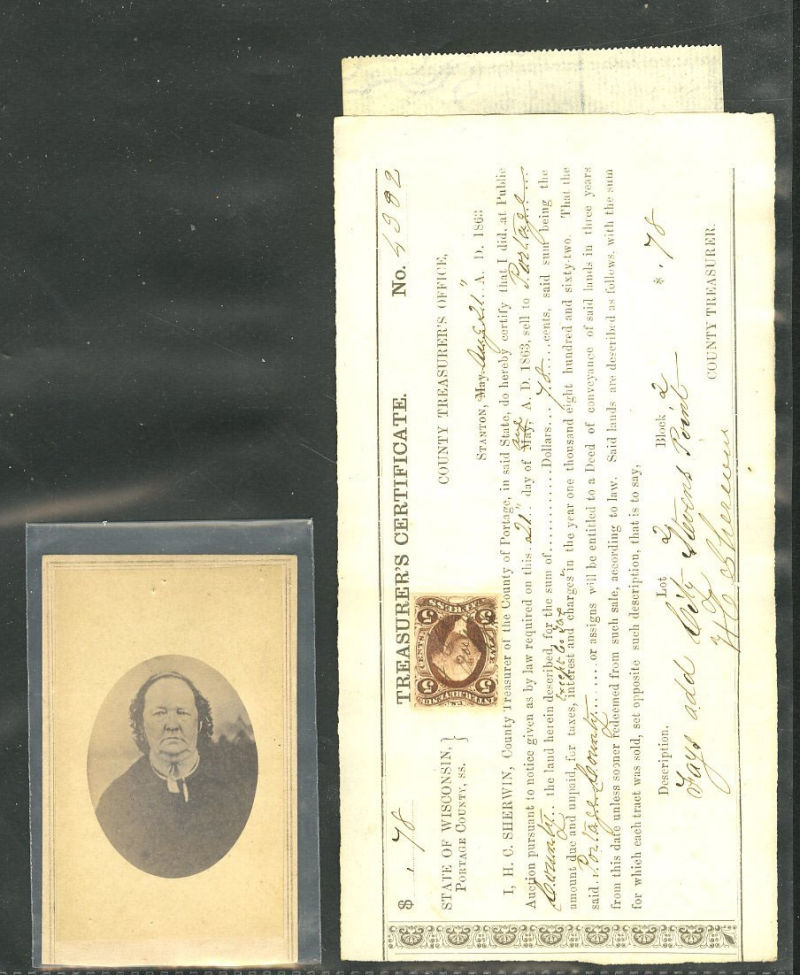 TREASURER'S CERTIFICATE.
No. 4382
$ .78
STATE OF WISCONSIN, }
PORTAGE COUNTY, SS. }
COUNTY TREASURER'S OFFICE,
STANTON, May Aug 21" A. D. 1863
I, H. C. SHERWIN, County Treasurer of the County of Portage, in said State, do hereby certify that I did, at Public
Auction pursuant to notice given as by law required on this 21" day of May, Aug A. D. 1863, sell to Portage
County the land herein described, for the sum of Dollars 78 cents, said sum being the
amount due and unpaid, for taxes, interest and charges in the year one thousand eight hundred and sixty-two. That the
said Portage County or assigns will be entitled to a Deed of conveyance of said lands in three years
from this date unless sooner redeemed from such sale, according to law. Said lands are described as follows, with the sum
for which each tract was sold, set opposite such description, that is to say,
Description. Lot 2 Block 2
Fays add City Stevens Point $ .78
H C Sherwin
COUNTY TREASURER.
5 5
U.S. INTER. REVENUE
FIVE CENTS
EXPRESS
5 5